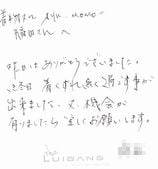 着物さん
藤田さんへ
昨日はありがとうございました。
1日着くずれ無く過ごす事が
出来ました。又、機会が
有りましたら宜しくお願いします。
LUIGANS